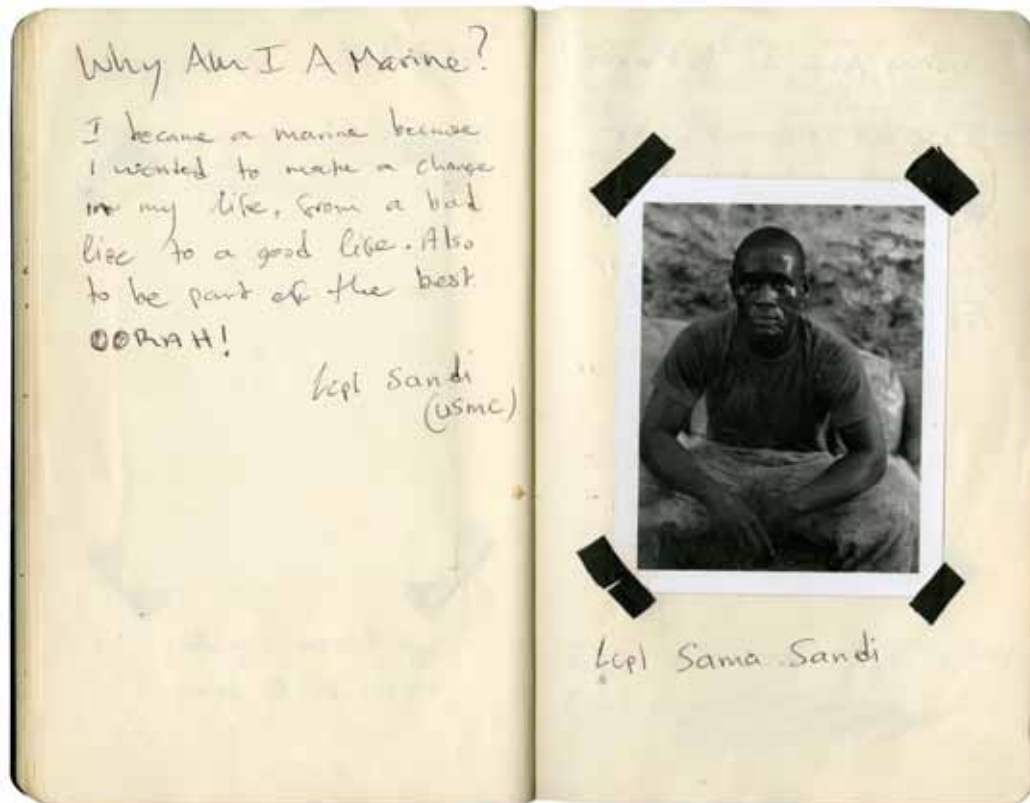 Why Am I A Marine?
I became a marine because
I wanted to make a change
in my life, from a bad
life to a good life. Also
to be part of the best
OORAH!
Lcpl Sandi
(USMC)
Lcpl Sama Sandi